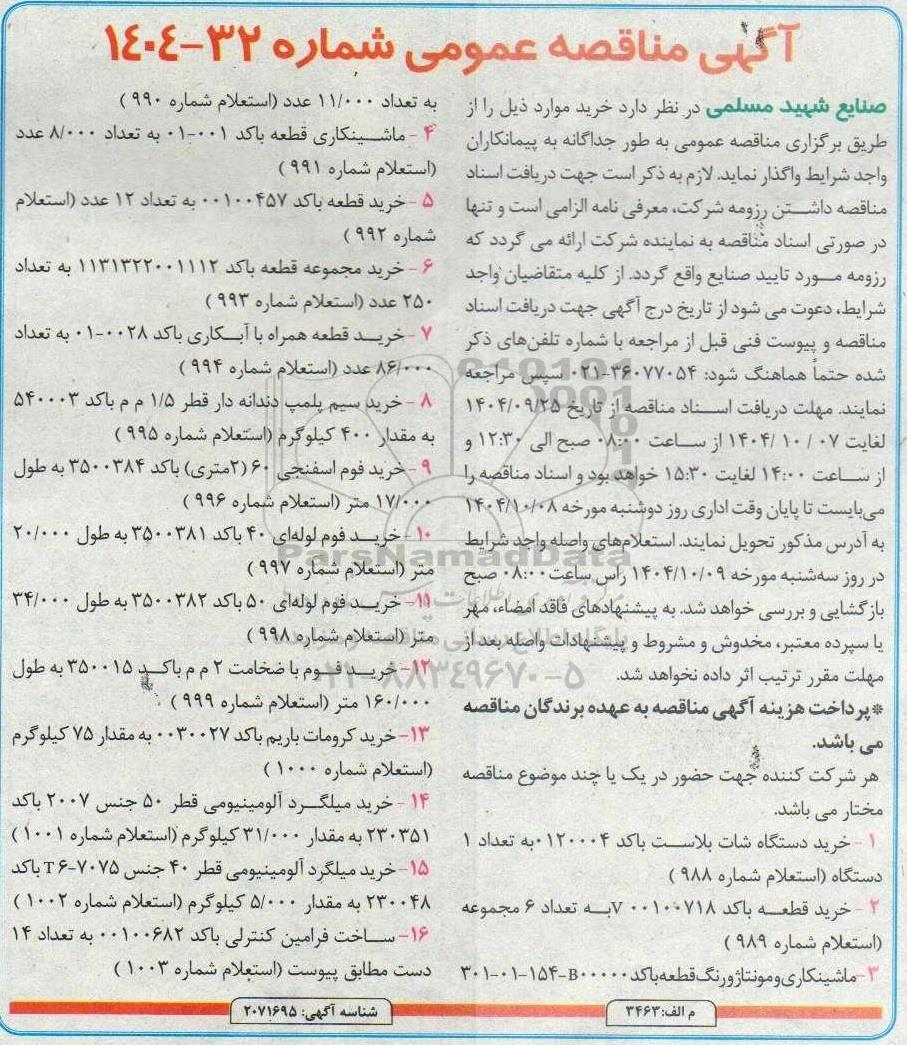 آگهی مناقصه عمومی شماره ۳۲-۱۴۰۴
صنایع شهید مسلمی در نظر دارد خرید موارد ذیل را از
طریق برگزاری مناقصه عمومی به طور جداگانه به پیمانکاران
واجد شرایط واگذار نماید. لازم به ذکر است جهت دریافت اسناد
مناقصه داشتن رزومه شرکت، معرفی نامه الزامی است و تنها
در صورتی اسناد مناقصه به نماینده شرکت ارائه می گردد که
رزومه مورد تایید صنایع واقع گردد. از کلیه متقاضیان واجد
شرایط، دعوت می شود از تاریخ درج آگهی جهت دریافت اسناد
مناقصه و پیوست فنی قبل از مراجعه با شماره تلفن‌های ذکر
شده حتماً هماهنگ شود: ۳۶۰۷۷۰۵۴-۰۲۱ سپس مراجعه
نمایند. مهلت دریافت اسناد مناقصه از تاریخ ۱۴۰۴/۰۹/۲۵
لغایت ۰۷ / ۱۰ /۱۴۰۴ از ساعت ۰۸:۰۰ صبح الی ۱۲:۳۰ و
از ساعت ۱۴:۰۰ لغایت ۱۵:۳۰ خواهد بود و اسناد مناقصه را
می‌بایست تا پایان وقت اداری روز دوشنبه مورخه ۱۴۰۴/۱۰/۰۸
به آدرس مذکور تحویل نمایند. استعلام‌های واصله واجد شرایط
در روز سه‌شنبه مورخه ۱۴۰۴/۱۰/۰۹ راس ساعت ۰۸:۰۰ صبح
بازگشایی و بررسی خواهد شد. به پیشنهادهای فاقد امضاء، مهر
یا سپرده معتبر، مخدوش و مشروط و پیشنهادات واصله بعد از
مهلت مقرر ترتیب اثر داده نخواهد شد.
*پرداخت هزینه آگهی مناقصه به عهده برندگان مناقصه
می باشد.
هر شرکت کننده جهت حضور در یک یا چند موضوع مناقصه
مختار می باشد.
۱ - خرید دستگاه شات بلاست باکد ۰۱۲۰۰۰۴به تعداد ۱
دستگاه (استعلام شماره ۹۸۸ )
۲ - خرید قطعه باکد V۰۰۱۰۰۷۱۸ به تعداد ۶ مجموعه
(استعلام شماره ۹۸۹ )
۳-ماشینکاری‌ومونتاژورنگ‌قطعه‌باکد۳۰۱-۰۱-۱۵۴-B۰۰۰۰۰
به تعداد ۱۱/۰۰۰ عدد (استعلام شماره ۹۹۰ )
۴ - ماشینکاری قطعه باکد ۰۰۱-۰۱ به تعداد ۸/۰۰۰ عدد
(استعلام شماره ۹۹۱ )
۵ - خرید قطعه باکد ۰۰۱۰۰۴۵۷ به تعداد ۱۲ عدد (استعلام
شماره ۹۹۲ )
۶ - خرید مجموعه قطعه باکد ۱۱۳۱۳۲۲۰۰۱۱۱۲ به تعداد
۲۵۰ عدد (استعلام شماره ۹۹۳ )
۷ - خرید قطعه همراه با آبکاری باکد ۰۰۲۸-۰۱ به تعداد
۸۶/۰۰۰ عدد (استعلام شماره ۹۹۴ )
۸ - خرید سیم پلمپ دندانه دار قطر ۱/۵ م م باکد ۵۴۰۰۰۳
به مقدار ۴۰۰ کیلوگرم (استعلام شماره ۹۹۵ )
۹ - خرید فوم اسفنجی ۶۰ (۲متری) باکد ۳۵۰۰۳۸۴ به طول
۱۷/۰۰۰ متر (استعلام شماره ۹۹۶ )
۱۰ - خرید فوم لوله‌ای ۴۰ باکد ۳۵۰۰۳۸۱ به طول ۲۰/۰۰۰
متر (استعلام شماره ۹۹۷ )
۱۱ - خرید فوم لوله‌ای ۵۰ باکد ۳۵۰۰۳۸۲ به طول ۳۴/۰۰۰
متر (استعلام شماره ۹۹۸ )
۱۲- خرید فوم با ضخامت ۲ م م باکد ۳۵۰۰۱۵ به طول
۱۶۰/۰۰۰ متر (استعلام شماره ۹۹۹ )
۱۳- خرید کرومات باریم باکد ۰۰۳۰۰۲۷ به مقدار ۷۵ کیلوگرم
(استعلام شماره ۱۰۰۰ )
۱۴ - خرید میلگرد آلومینیومی قطر ۵۰ جنس ۲۰۰۷ باکد
۲۳۰۳۵۱ به مقدار ۳۱/۰۰۰ کیلوگرم (استعلام شماره ۱۰۰۱ )
۱۵- خرید میلگرد آلومینیومی قطر ۴۰ جنس ۷۰۷۵-T۶ باکد
۲۳۰۰۴۸ به مقدار ۵/۰۰۰ کیلوگرم (استعلام شماره ۱۰۰۲ )
۱۶- ساخت فرامین کنترلی باکد ۰۰۱۰۰۶۸۲ به تعداد ۱۴
دست مطابق پیوست (استعلام شماره ۱۰۰۳ )
م الف:۳۴۶۳
شناسه آگهی: ۲۰۷۱۶۹۵
ParsNamadData
۰۲۱-۸۸۳۴۹۶۷۰-۵